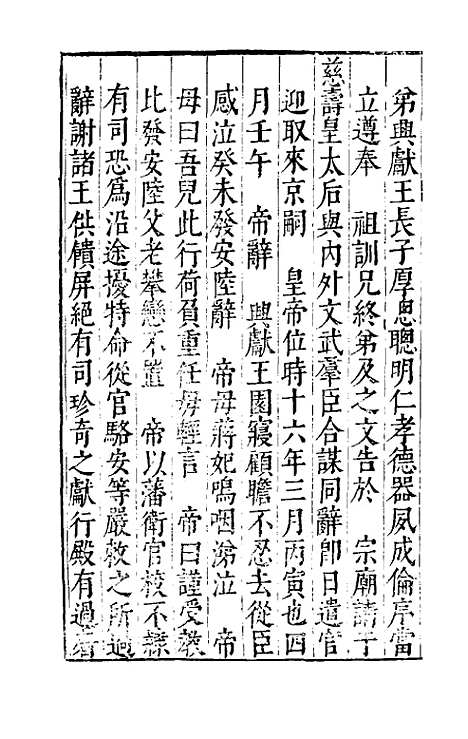 弟興獻王長子厚熜聰明仁孝德器夙成倫序當
立遵奉　祖訓兄終弟及之文告於　宗廟請于
慈壽皇太后與內外文武羣臣合謀同辭卽日遣官
迎取來京嗣　皇帝位時十六年三月丙寅也四
月壬午　帝辭　興獻王園寢顧瞻不忍去從臣
感泣癸未發安陸辭　帝母蔣妃嗚咽涕泣　帝
母曰吾兒此行荷負重任毋輕言　帝曰謹受教
比發安陸父老攀戀不置　帝以藩衛官校不隸
有司恐為沿途擾特命從官駱安等嚴敕之所過
辭謝諸王供饋屏絕有司珍奇之獻行殿有過